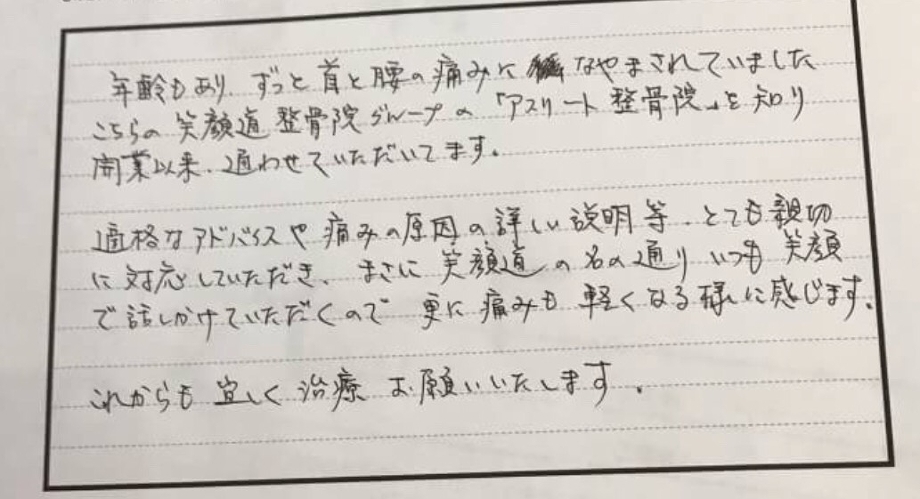 年齢もあり、ずっと首と腰の痛みになやまされていました
こちらの笑顔道整骨院グループの「アスリート整骨院」を知り
開業以来、通わせていただいてます。
適格なアドバイスや痛みの原因の詳しい説明等、とても親切
に対応していただき、まさに笑顔道の名の通りいつも笑顔
で話しかけていただくので更に痛みも軽くなる様に感じます。
これからも宜しく治療お願いいたします。